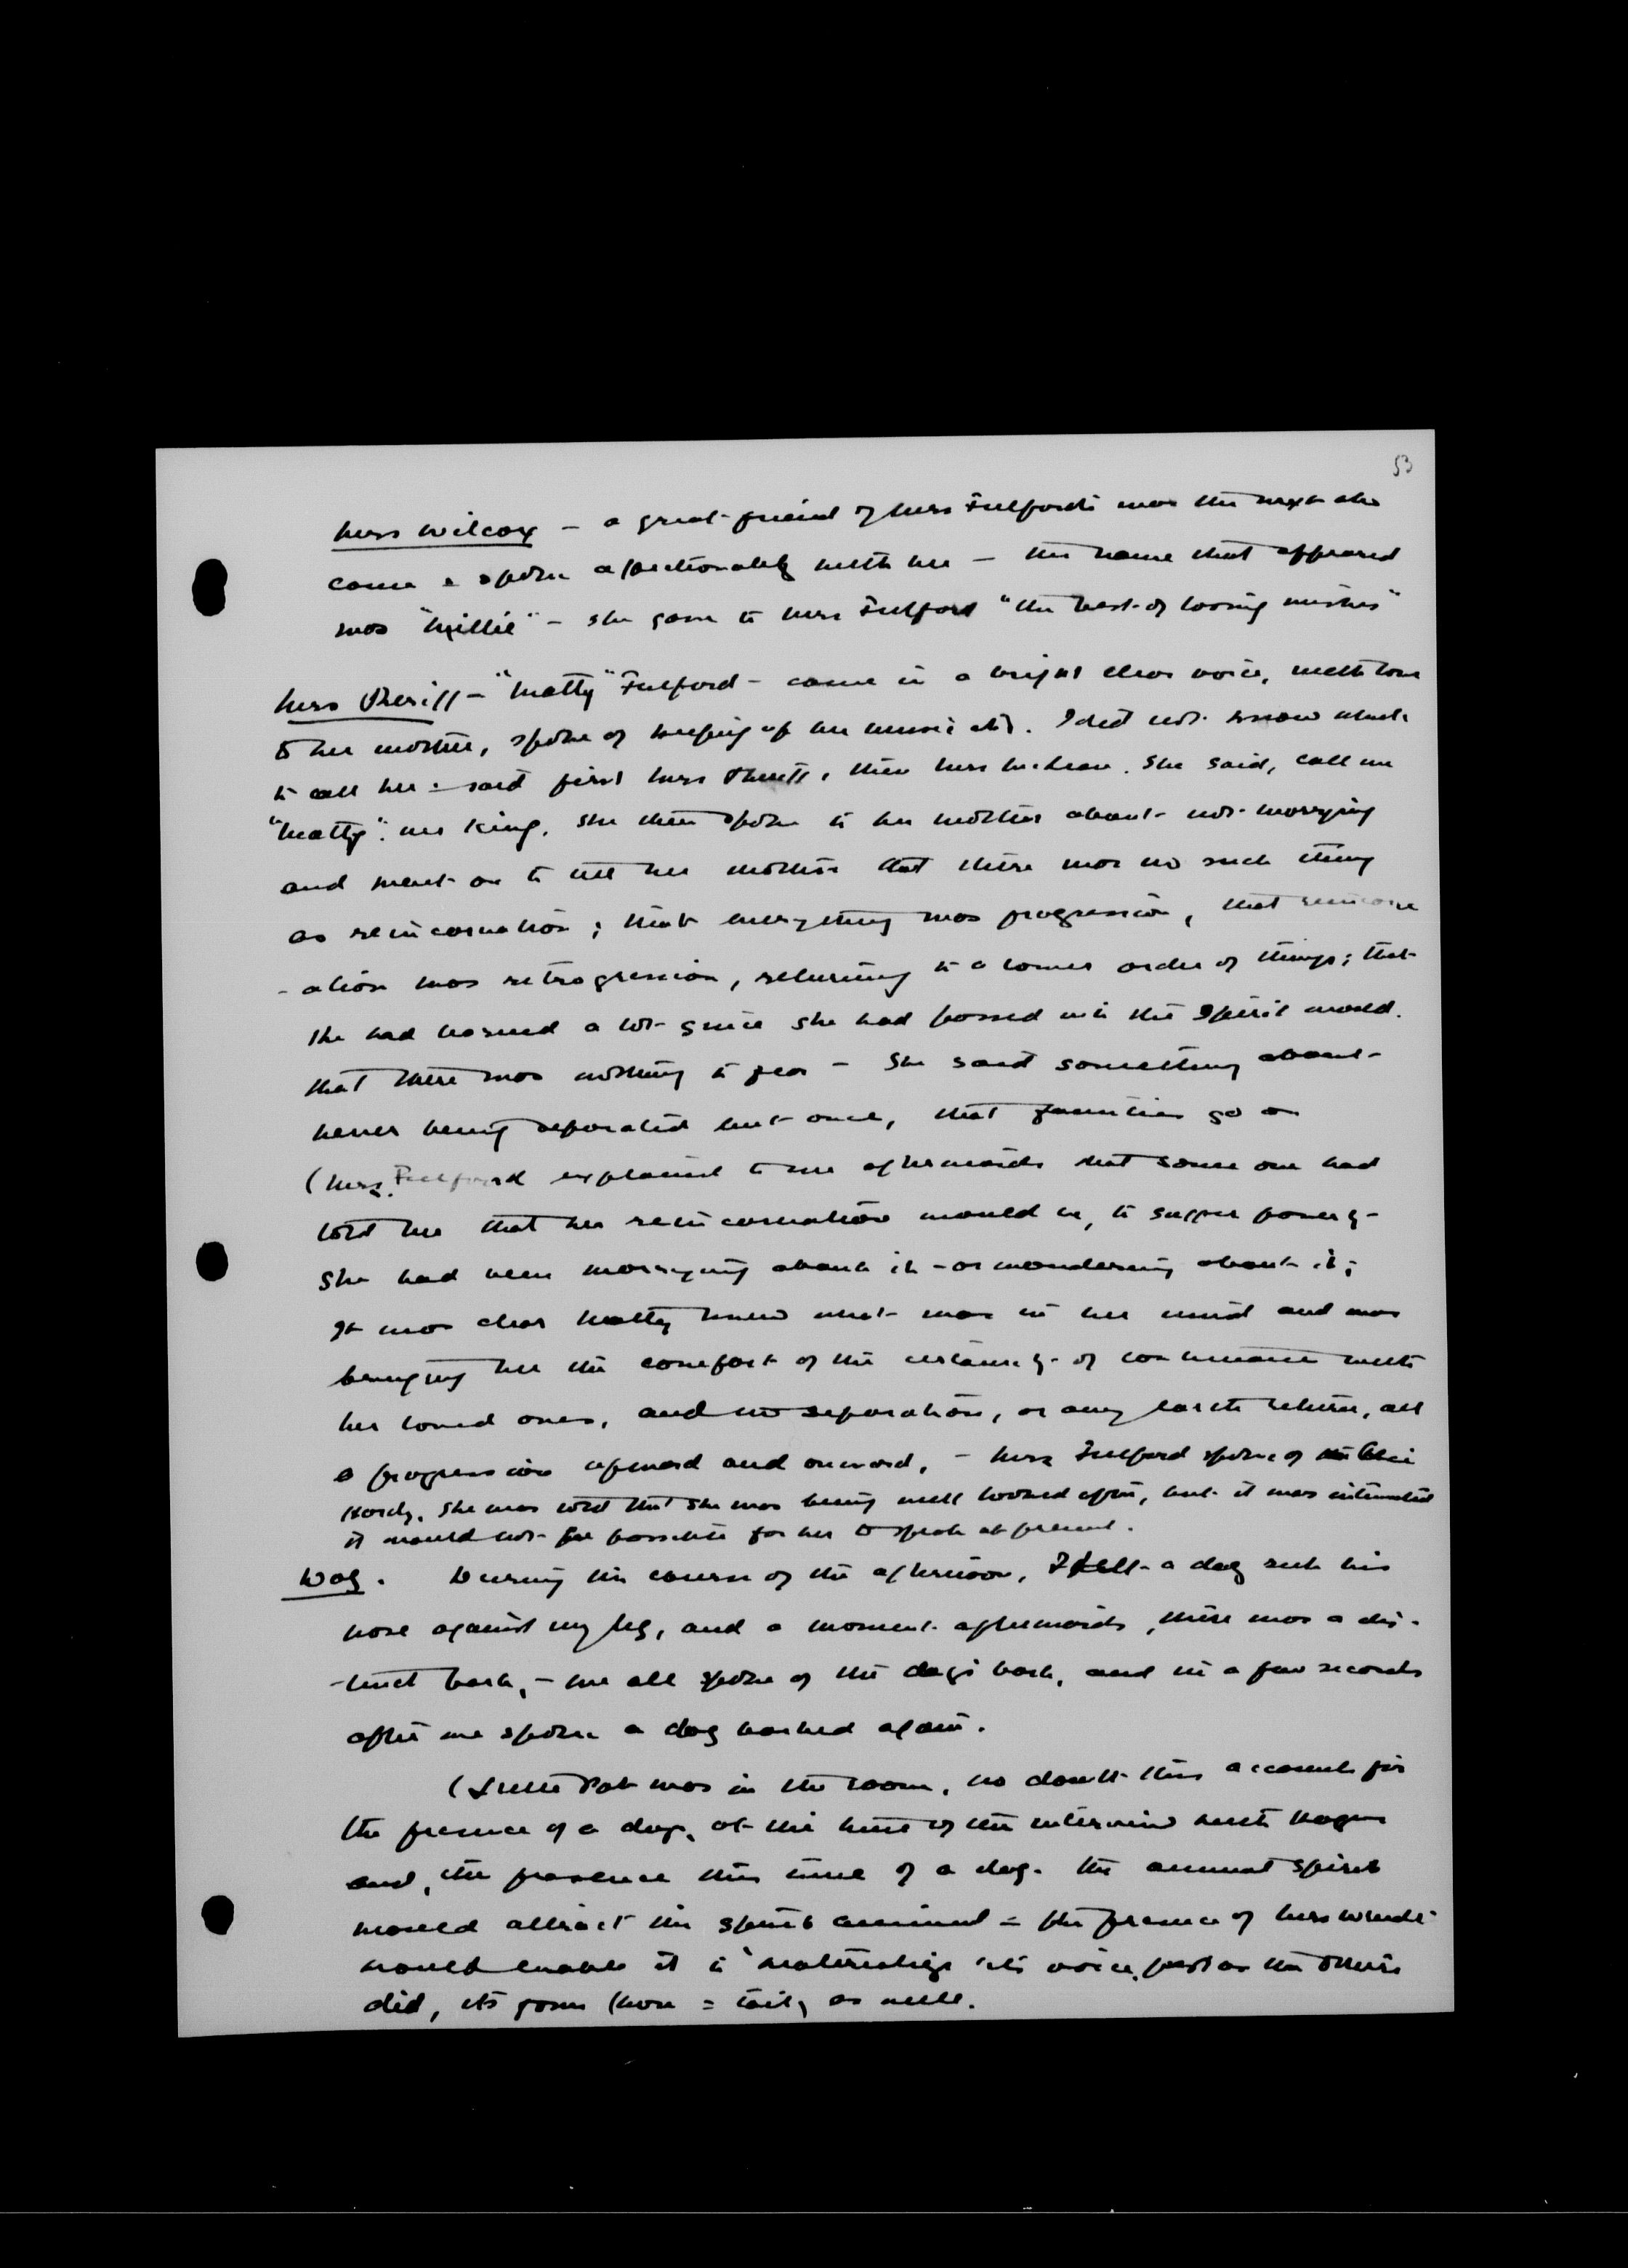 53
Mrs Wilcox – a great friend of Mrs Fulford's was the next who
came & spoke affectionately with her – the name that appeared
was "Millie" – she gave to Mrs Fulford "the best of loving wishes"
Mrs Sheriff – "Matty" Fulford – came in a bright clear voice, with love
to her mother, spoke of keeping up her music etc. I did not know what
to call her – said first Mrs Sheriff, then Mrs. She said, call me
"Matty" Mr King. She then spoke to her mother about not worrying
and went on to tell her mother that there was no such thing
as reincarnation; that everything was progression, that reincarn
-ation was retrogression, returning to a lower order of things; that
she had learned a lot since she had passed into the Spirit world.
that there was nothing to fear – She said something about
never being separated but once, that families go on
(Mrs. Fulford explained to me afterwards that some one had
told her that her reincarnation would be, to suffer poverty –
She had been worrying about it – or wondering about it;
It was clear Matty knew what was in her mind and was
bringing her the comfort of the certainty of continuance with
her loved ones, and no separation, or any earth return, all
a progression upward and onward, – Mrs Fulford spoke of
Hardy. She was told that she was being well looked after, but it was intimated
it would not be possible for her to speak at present.
Dog. During the course of the afternoon, I felt a dog rub his
nose against my leg, and a moment afterwards, there was a dis-
-tinct bark, – we all spoke of the dog's bark, and in a few seconds
after we spoke a dog barked again.
(Little Pat was in the room, no doubt this accounts for
the presence of a dog, at the time of the interview with
and, the presence this time of a dog. The animal spirit
would attract the spirit animal – the presence of Mrs Wriedt
would enable it to "materialize" its voice, just as the others
did, its form (nose = tail) as well.